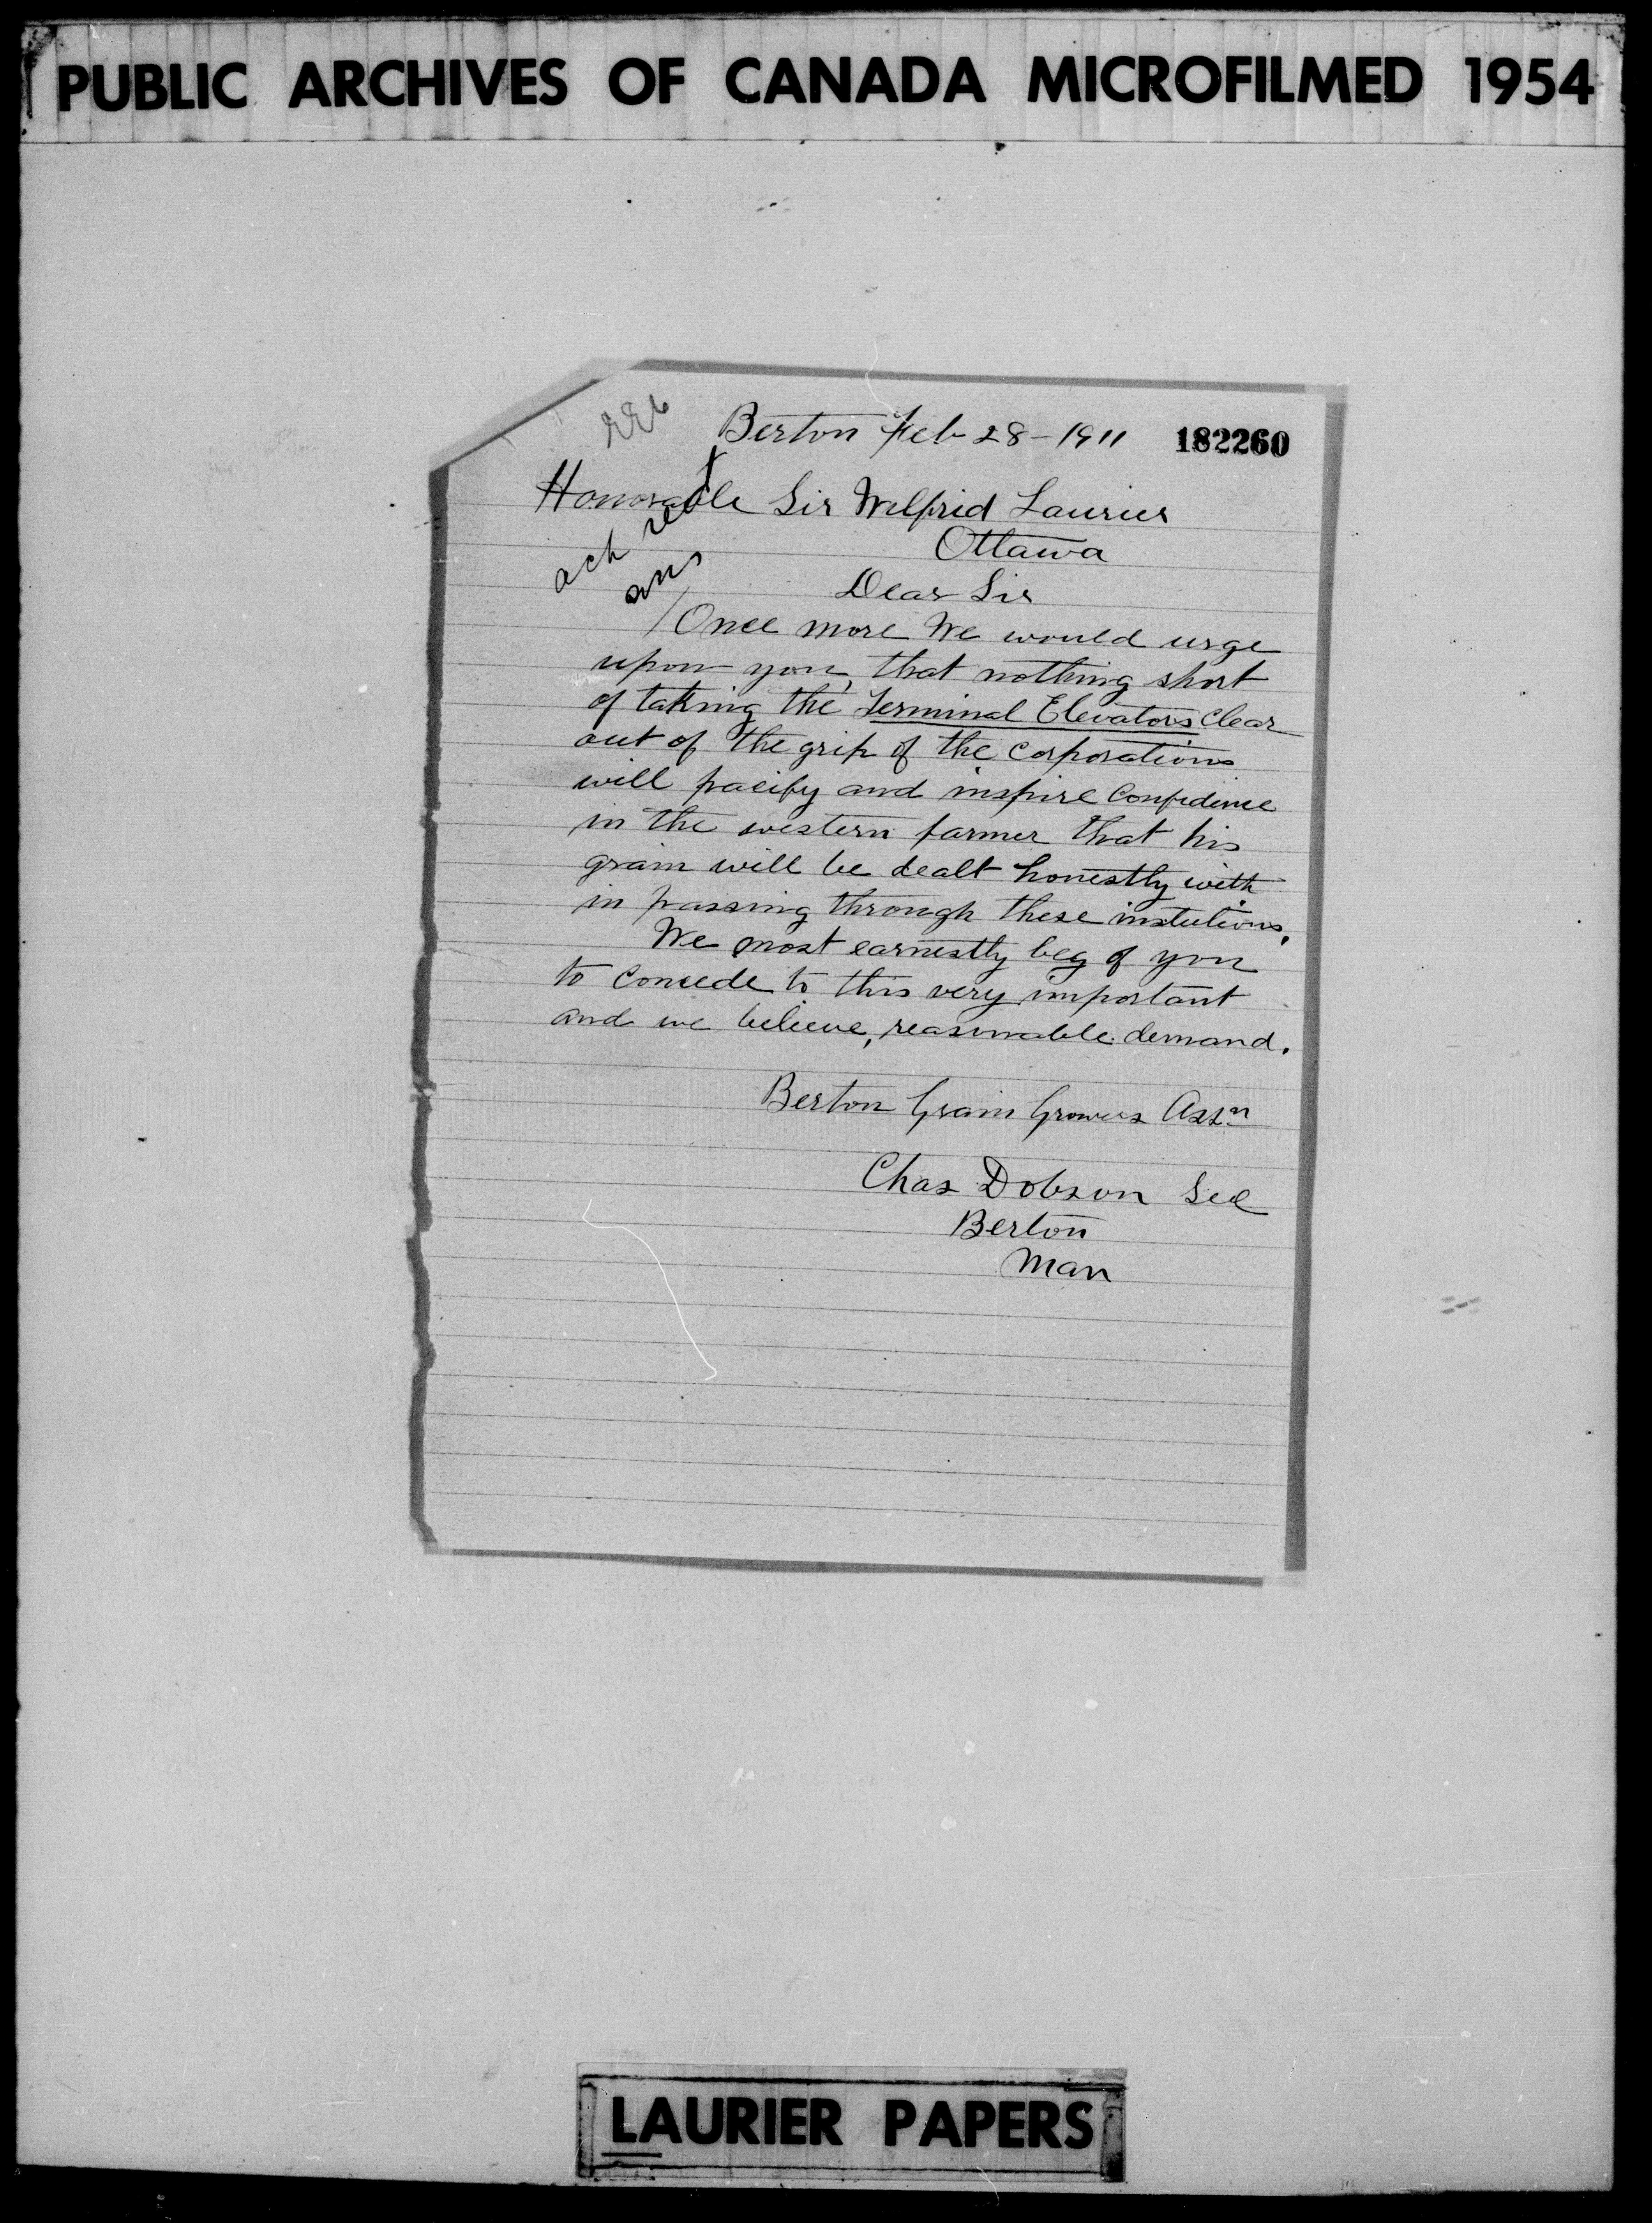 PUBLIC ARCHIVES OF CANADA MICROFILMED 1954
Berton Feb 28-1911 182260
Honorable Sir Wilfrid Laurier
Ottawa
ack
ans
Dear Sir
Once more We would urge
upon you, that nothing short
of taking the Terminal Elevators clear
out of the grip of the Corporations
will pacify and inspire Confidence
in the western farmer that his
grain will be dealt honestly with
in passing through these instutions.
We most earnestly beg of you
to concede to this very important
and we believe, reasonable demand.
Berton Grain Growers Assn
Chas Dobson Sec
Berton
Man
LAURIER PAPERS